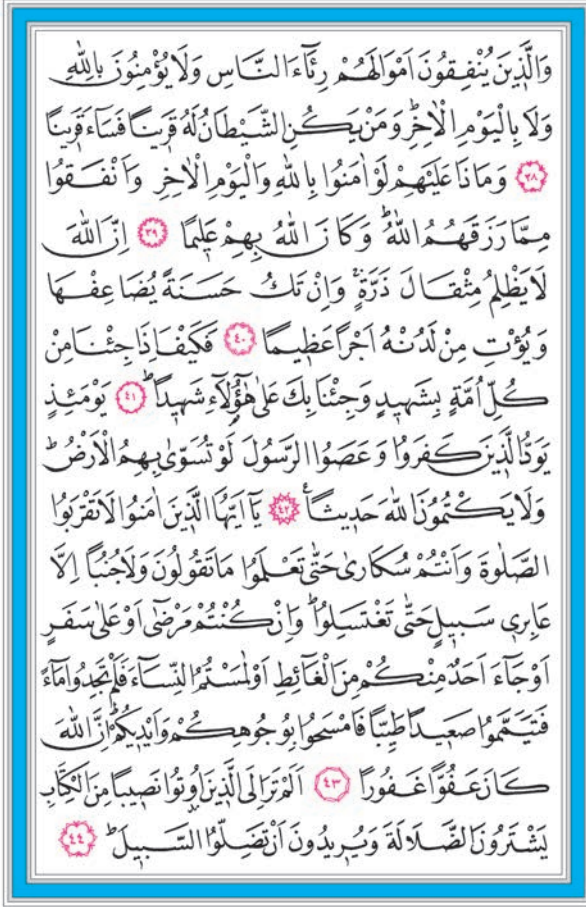 وَالَّذِينَ يُنْفِقُونَ اَمْوَالَهُمْ رِئَاءَ النَّاسِ وَلَا يُؤْمِنُونَ بِاللّٰهِ
وَلَا بِالْيَوْمِ الْاٰخِرِۜ وَمَنْ يَكُنِ الشَّيْطَانُ لَهُ قَرِينًا فَسَاءَ قَرِينًا
﴿٣٨﴾ وَمَاذَا عَلَيْهِمْ لَوْ اٰمَنُوا بِاللّٰهِ وَالْيَوْمِ الْاٰخِرِ وَاَنْفَقُوا
مِمَّا رَزَقَهُمُ اللّٰهُۜ وَكَانَ اللّٰهُ بِهِمْ عَلِيمًا ﴿٣٩﴾ اِنَّ اللّٰهَ
لَا يَظْلِمُ مِثْقَالَ ذَرَّةٍۚ وَاِنْ تَكُ حَسَنَةً يُضَاعِفْهَا
وَيُؤْتِ مِنْ لَدُنْهُ اَجْرًا عَظِيمًا ﴿٤٠﴾ فَكَيْفَ اِذَا جِئْنَا مِنْ
كُلِّ اُمَّةٍ بِشَهِيدٍ وَجِئْنَا بِكَ عَلٰى هٰٓؤُلَاءِ شَهِيدًاۜ ﴿٤١﴾ يَوْمَئِذٍ
يَوَدُّ الَّذِينَ كَفَرُوا وَعَصَوُا الرَّسُولَ لَوْ تُسَوّٰى بِهِمُ الْاَرْضُۜ
وَلَا يَكْتُمُونَ اللّٰهَ حَدِيثًا۟ ﴿٤٢﴾ يَٓا اَيُّهَا الَّذِينَ اٰمَنُوا لَا تَقْرَبُوا
الصَّلٰوةَ وَاَنْتُمْ سُكَارٰى حَتّٰى تَعْلَمُوا مَا تَقُولُونَ وَلَا جُنُبًا اِلَّا
عَابِرِي سَبِيلٍ حَتّٰى تَغْتَسِلُواۜ وَاِنْ كُنْتُمْ مَرْضٰٓى اَوْ عَلٰى سَفَرٍ
اَوْ جَاءَ اَحَدٌ مِنْكُمْ مِنَ الْغَائِطِ اَوْ لٰمَسْتُمُ النِّسَاءَ فَلَمْ تَجِدُوا مَاءً
فَتَيَمَّمُوا صَعِيدًا طَيِّبًا فَامْسَحُوا بِوُجُوهِكُمْ وَاَيْدِيكُمْۜ اِنَّ اللّٰهَ
كَانَ عَفُوًّا غَفُورًا ﴿٤٣﴾ اَلَمْ تَرَ اِلَى الَّذِينَ اُو۫تُوا نَصِيبًا مِنَ الْكِتَابِ
يَشْتَرُونَ الضَّلَالَةَ وَيُرِيدُونَ اَنْ تَضِلُّوا السَّبِيلَۜ ﴿٤٤﴾